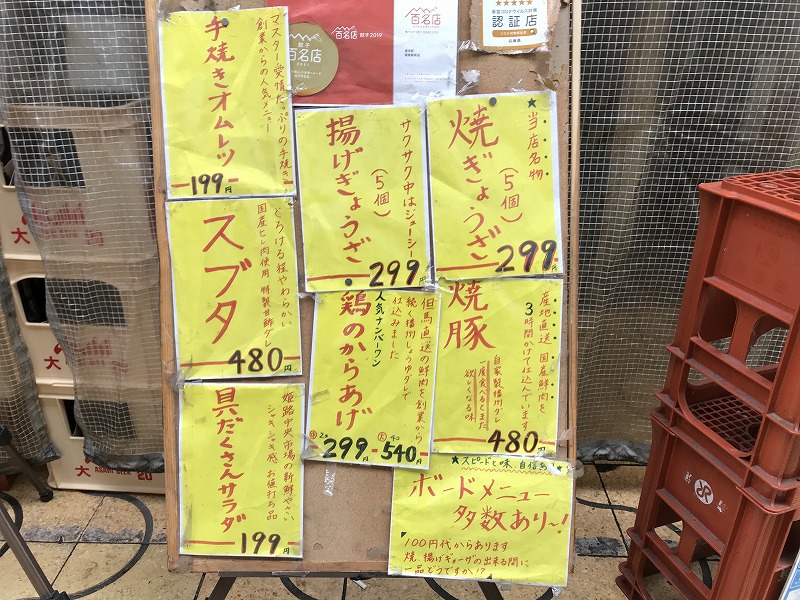 手焼きオムレツ
マスター愛情たっぷりの手焼き
創業からの人気メニュー
199円
餃子
百名店
2021
百名店 餃子 2019
百名店
新型コロナウイルス対策
認証店
兵庫県
揚げぎょうざ
(5個)
サクサク中はジューシー
299円
★当店名物
焼ぎょうざ
(5個)
299円
スブタ
とろける程やわらかい
国産ヒレ肉使用 特製甘酢ダレ
480円
人気ナンバーワン
鶏のからあげ
但馬直送の鮮肉を創業から
続く播州しょうゆダレで
仕込みました
小 2コ 299円
大 4コ 540円
焼豚
産地直送 国産鮮肉を
3時間かけて仕込んでいます
自家製播州ダレ
一度食べるとまた
欲しくなる味
480円
具だくさんサラダ
姫路中央市場の新鮮やさい
シャキシャキ感 お値打ち品
199円
★スピードと味 自信あり
ボードメニュー
多数あり〜!
100円代からあります
焼、揚げギョーザの出来る間に
一品どうですか!?
大
大
大
ASAHI BEER 20